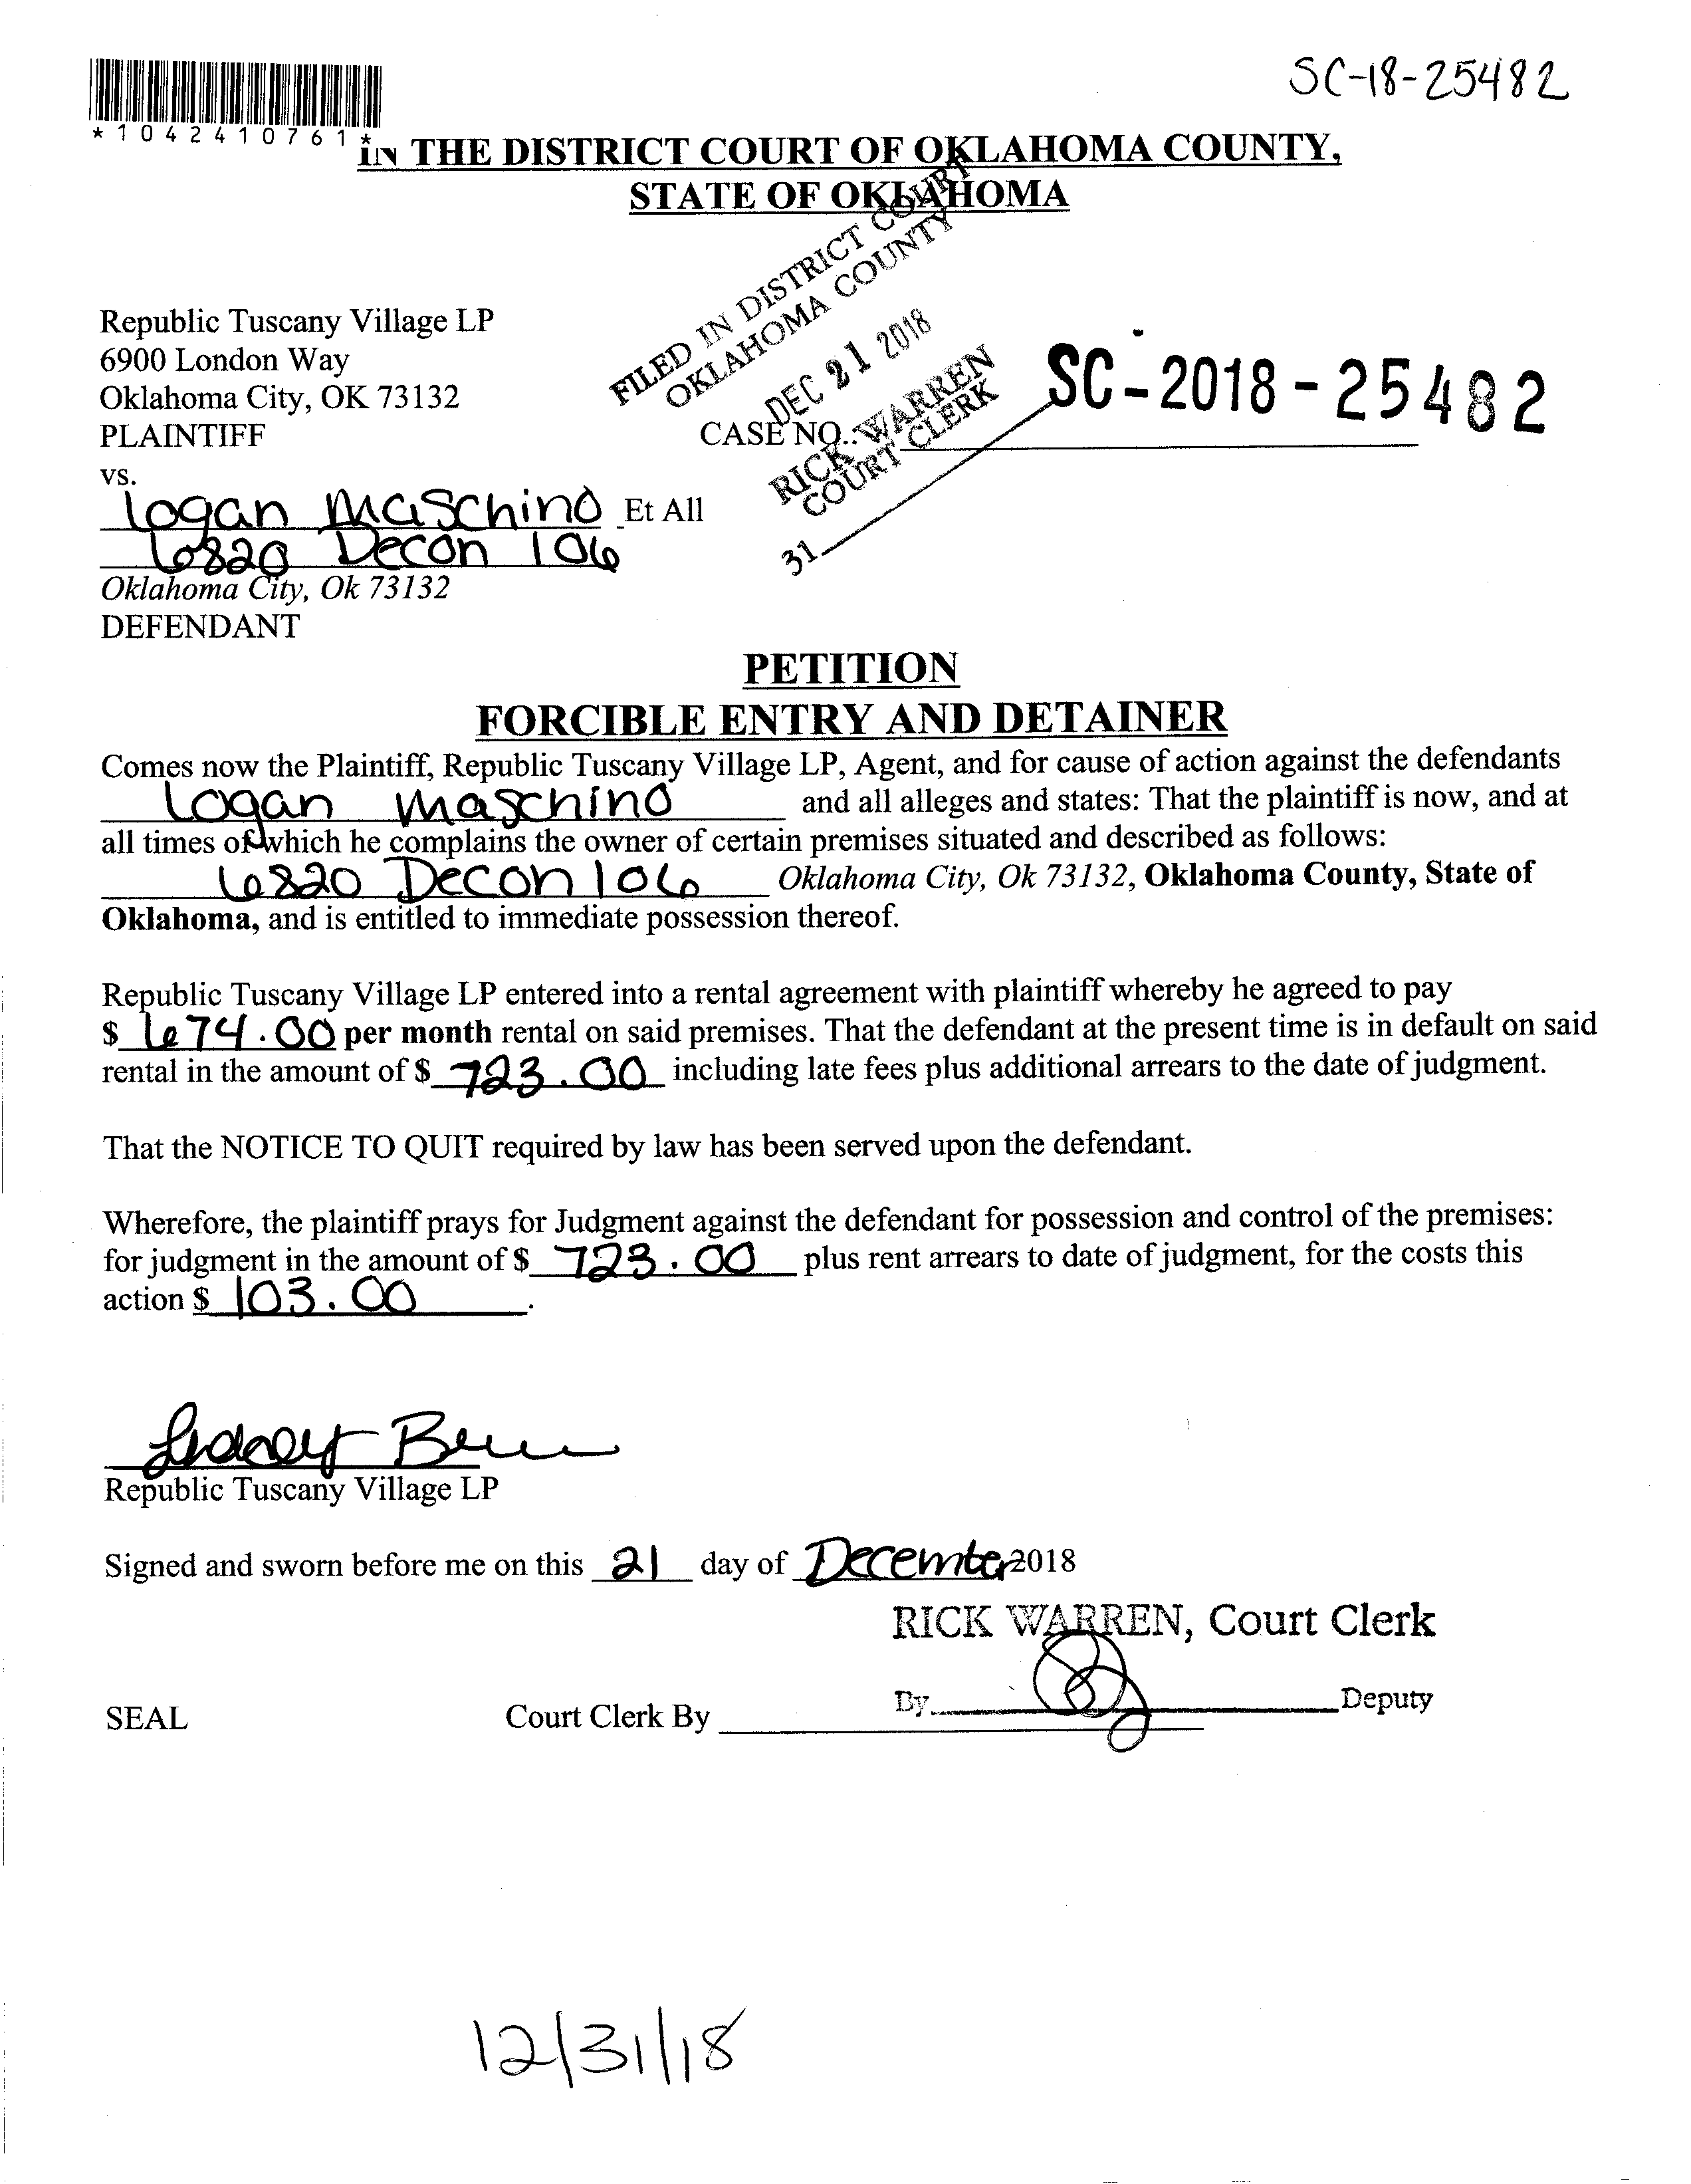 SC-18-25482
*1042410761*
IN THE DISTRICT COURT OF OKLAHOMA COUNTY,
STATE OF OKLAHOMA
FILED IN DISTRICT COURT
OKLAHOMA COUNTY
DEC 21 2018
RICK WARREN
COURT CLERK
31
Republic Tuscany Village LP
6900 London Way
Oklahoma City, OK 73132
PLAINTIFF
CASE NO.: SC-2018-25482
vs.
Logan Maschino Et All
6820 Decon 106
Oklahoma City, Ok 73132
DEFENDANT
PETITION
FORCIBLE ENTRY AND DETAINER
Comes now the Plaintiff, Republic Tuscany Village LP, Agent, and for cause of action against the defendants
Logan Maschino and all alleges and states: That the plaintiff is now, and at
all times of which he complains the owner of certain premises situated and described as follows:
6820 Decon 106 Oklahoma City, Ok 73132, Oklahoma County, State of
Oklahoma, and is entitled to immediate possession thereof.
Republic Tuscany Village LP entered into a rental agreement with plaintiff whereby he agreed to pay
$ 674.00 per month rental on said premises. That the defendant at the present time is in default on said
rental in the amount of $ 723.00 including late fees plus additional arrears to the date of judgment.
That the NOTICE TO QUIT required by law has been served upon the defendant.
Wherefore, the plaintiff prays for Judgment against the defendant for possession and control of the premises:
for judgment in the amount of $ 723.00 plus rent arrears to date of judgment, for the costs this
action $ 103.00.
Republic Tuscany Village LP
Signed and sworn before me on this 21 day of December 2018
RICK WARREN, Court Clerk
By Deputy
SEAL Court Clerk By
12/31/18